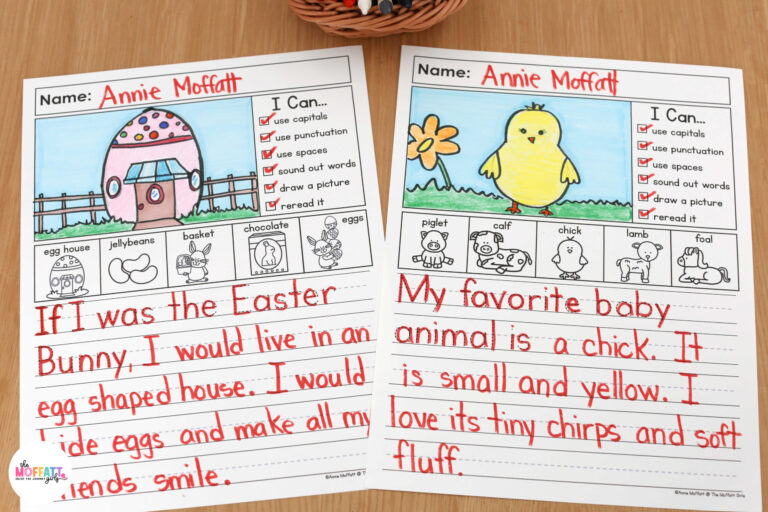 Name: Annie Moffatt
I Can...
use capitals
use punctuation
use spaces
sound out words
draw a picture
reread it
egg house
jellybeans
basket
chocolate
eggs
If I was the Easter
Bunny, I would live in an
egg shaped house. I would
ide eggs and make all my
iends smile.
©Annie Moffatt @ The
Name: Annie Moffatt
I Can...
use capitals
use punctuation
use spaces
sound out words
draw a picture
reread it
piglet
calf
chick
lamb
foal
My favorite baby
animal is a chick. It
is small and yellow. I
love its tiny chirps and soft
fluff.
©Annie Moffatt @ The Moffatt Girls
the
MOFFATT
girls
ENJOY THE JOURNEY